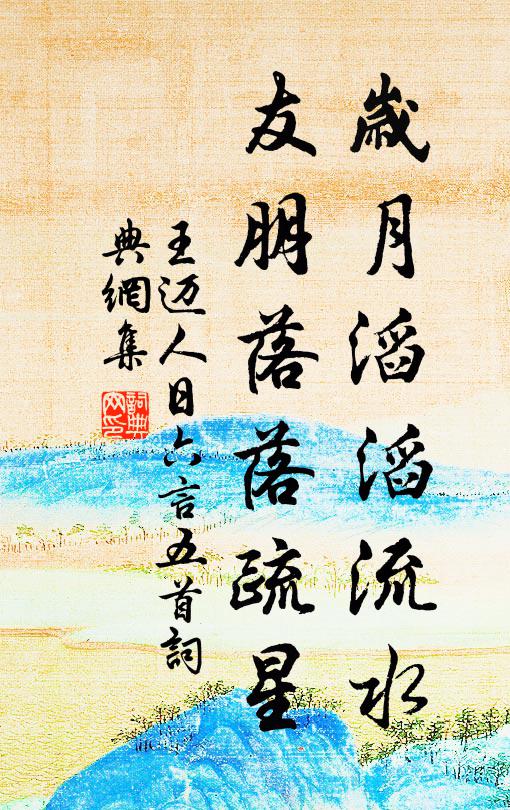 歲月滔滔流水
友朋落落疏星
王迈人日六言五首詞
典網集
詞典
网印